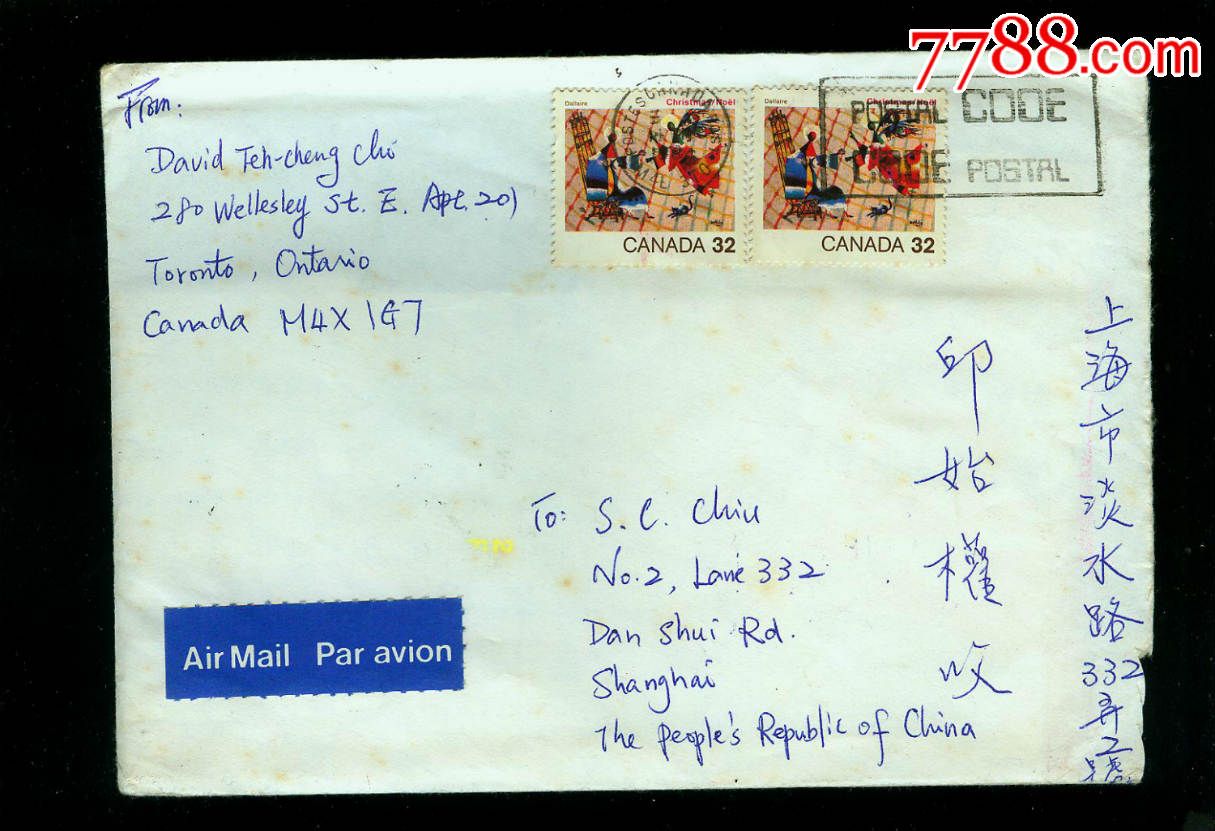 7788.com
From:
David Teh-cheng Chi
280 Wellesley St. E. Apt. 201
Toronto, Ontario
Canada M4X 1G7
Dallaire
Christmas/Noël
CANADA 32
Dallaire
Christmas/Noël
CANADA 32
POSTAL CODE
CODE POSTAL
To: S. C. Chiu
No. 2, Lane 332
Dan Shui Rd.
Shanghai
The People's Republic of China
AirMail Par avion
上海市淡水路332弄2号
印始權收